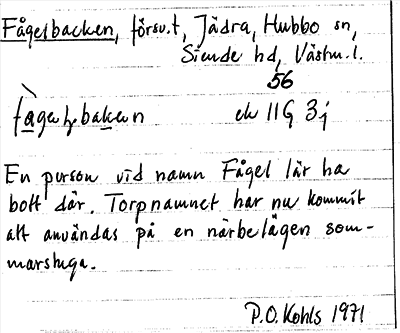 Fågelbacken, försv.t, Jädra, Hubbo sn,
Siende hd, Västm.l.
56
ek 11G 3j
En person vid namn Fågel lär ha
bott där. Torpnamnet har nu kommit
att användas på en närbelägen som-
marstuga.
P.O. Kohls 1971